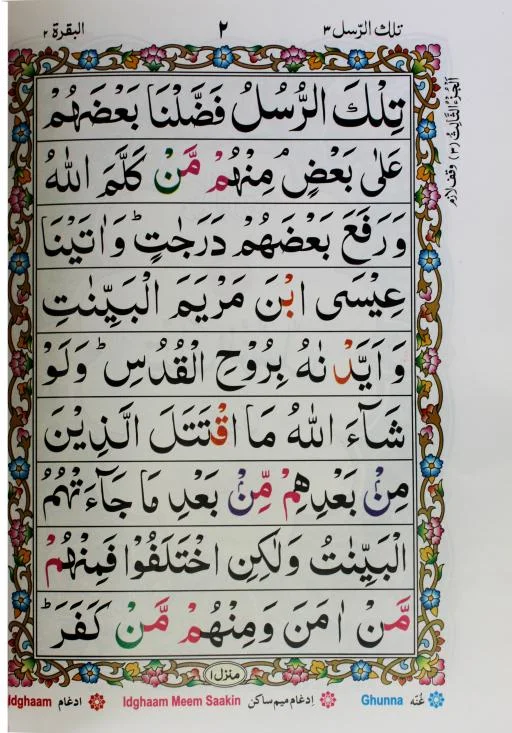 تلك الرّسل ٣ ٢ البقرة ٢
تِلْكَ الرُّسُلُ فَضَّلْنَا بَعْضَهُمْ
عَلٰى بَعْضٍ ۘ مِنْهُمْ مَّنْ كَلَّمَ اللّٰهُ
وَرَفَعَ بَعْضَهُمْ دَرَجٰتٍ ؕ وَاٰتَيْنَا
عِيْسَى ابْنَ مَرْيَمَ الْبَيِّنٰتِ
وَاَيَّدْنٰهُ بِرُوْحِ الْقُدُسِ ؕ وَلَوْ
شَآءَ اللّٰهُ مَا اقْتَتَلَ الَّذِيْنَ
مِنْۢ بَعْدِهِمْ مِّنْۢ بَعْدِ مَا جَآءَتْهُمُ
الْبَيِّنٰتُ وَلٰكِنِ اخْتَلَفُوْا فَمِنْهُمْ
مَّنْ اٰمَنَ وَمِنْهُمْ مَّنْ كَفَرَ ؕ
الجزء الثالث (٣) وقف لازم
منزل ١
غُنّه Ghunna اِدغام میم ساکن Idghaam Meem Saakin ادغام Idghaam